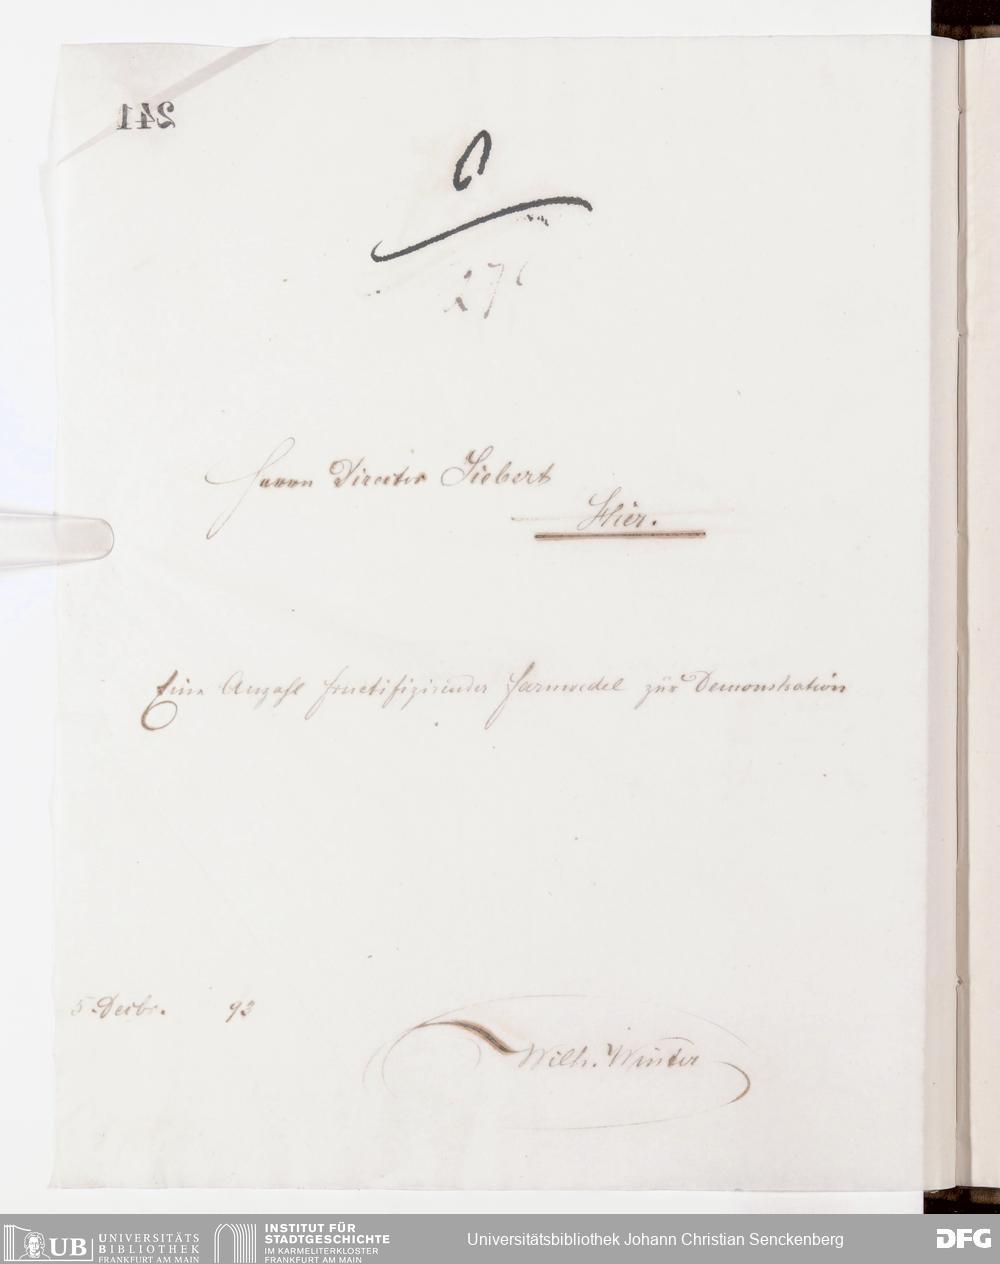 241
27
Herrn Director Siebert
Hier.
Eine Anzahl fructifizirender Farnwedel zür Demonstration
5. Decbr. 93
Wilh. Winter
UB UNIVERSITÄTS
BIBLIOTHEK
FRANKFURT AM MAIN
INSTITUT FÜR
STADTGESCHICHTE
IM KARMELITERKLOSTER
FRANKFURT AM MAIN
Universitätsbibliothek Johann Christian Senckenberg
DFG